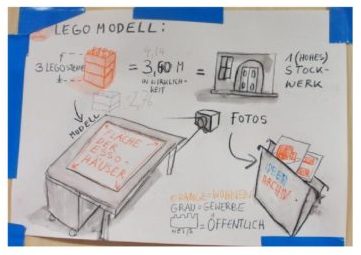 LEGO MODELL:
3 LEGOSTEINE
= 3,60 M
IN WIRKLICH-
KEIT
=
1 (HOHES)
STOCK-
WERK
MODELL
FLÄCHE
DER
ESSO
HÄUSER
FOTOS
IDEEN
ARCHIV
ORANGE=WOHNEN
GRAU=GEWERBE
WEISS
=ÖFFENTLICH